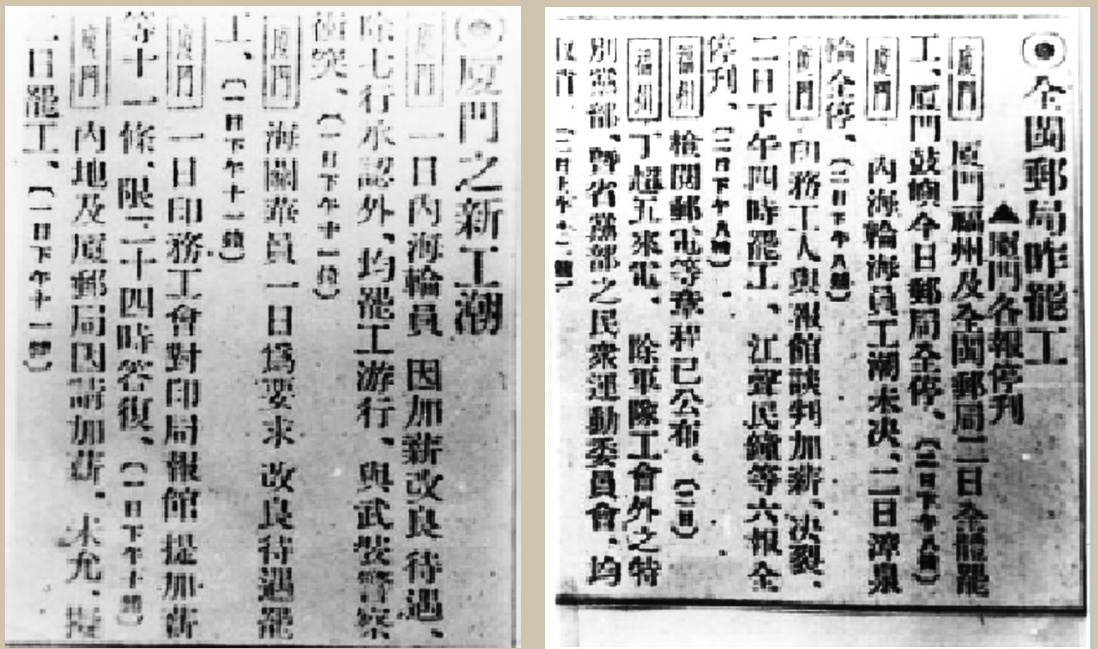 ◉廈門之新工潮
廈門 一日內海輪員 因加薪改良待遇、
除七行承認外、均罷工游行、與武裝警察
衝突、（一日下午十一鐘）
廈門 海關華員一日爲要求 改良待遇罷
工、（一日下午十一鐘）
廈門 一日印務工會對印局報館提加薪
等十一條、限二十四時答復、（一日下午十一鐘）
廈門 內地及廈郵局因請加薪、未允、擬
二日罷工、（一日下午十一鐘）
◉全閩郵局昨罷工
▲廈門各報停刊
廈門 廈門福州及全閩郵局二日全體罷
工、廈門鼓嶼今日郵局全停、（二日下午八鐘）
廈門 內海輪海員工潮未決、二日漳泉
輪全停、（二日下午八鐘）
廈門 印務工人與報館談判加薪、決裂、
二日下午四時罷工、江聲民鐘等六報全
停刊、（二日下午八鐘）
福州 檢閱郵電等章程已公布、（二日）
福州 丁超五來電、 除軍隊工會外之特
別黨部、暨省黨部之民衆運動委員會、均